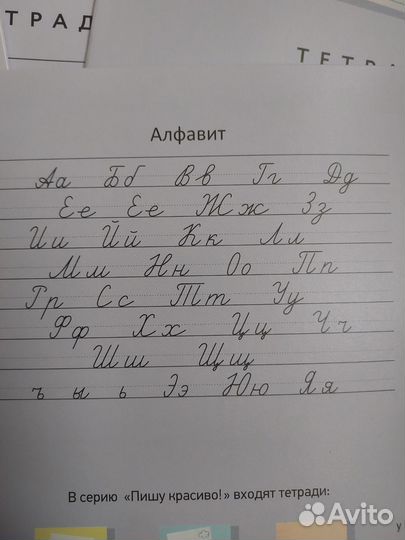 ТРАД
ТЕТРА
Алфавит
Аа Бб Вв Гг Дд
Ее Ее Жж Зз
Ии Йй Кк Лл
Мм Нн Оо Пп
Рр Сс Тт Уу
Фф Хх Цц Чч
Шш Щщ
ъ ы ь Ээ Юю Яя
В серию «Пишу красиво!» входят тетради:
у
Avito